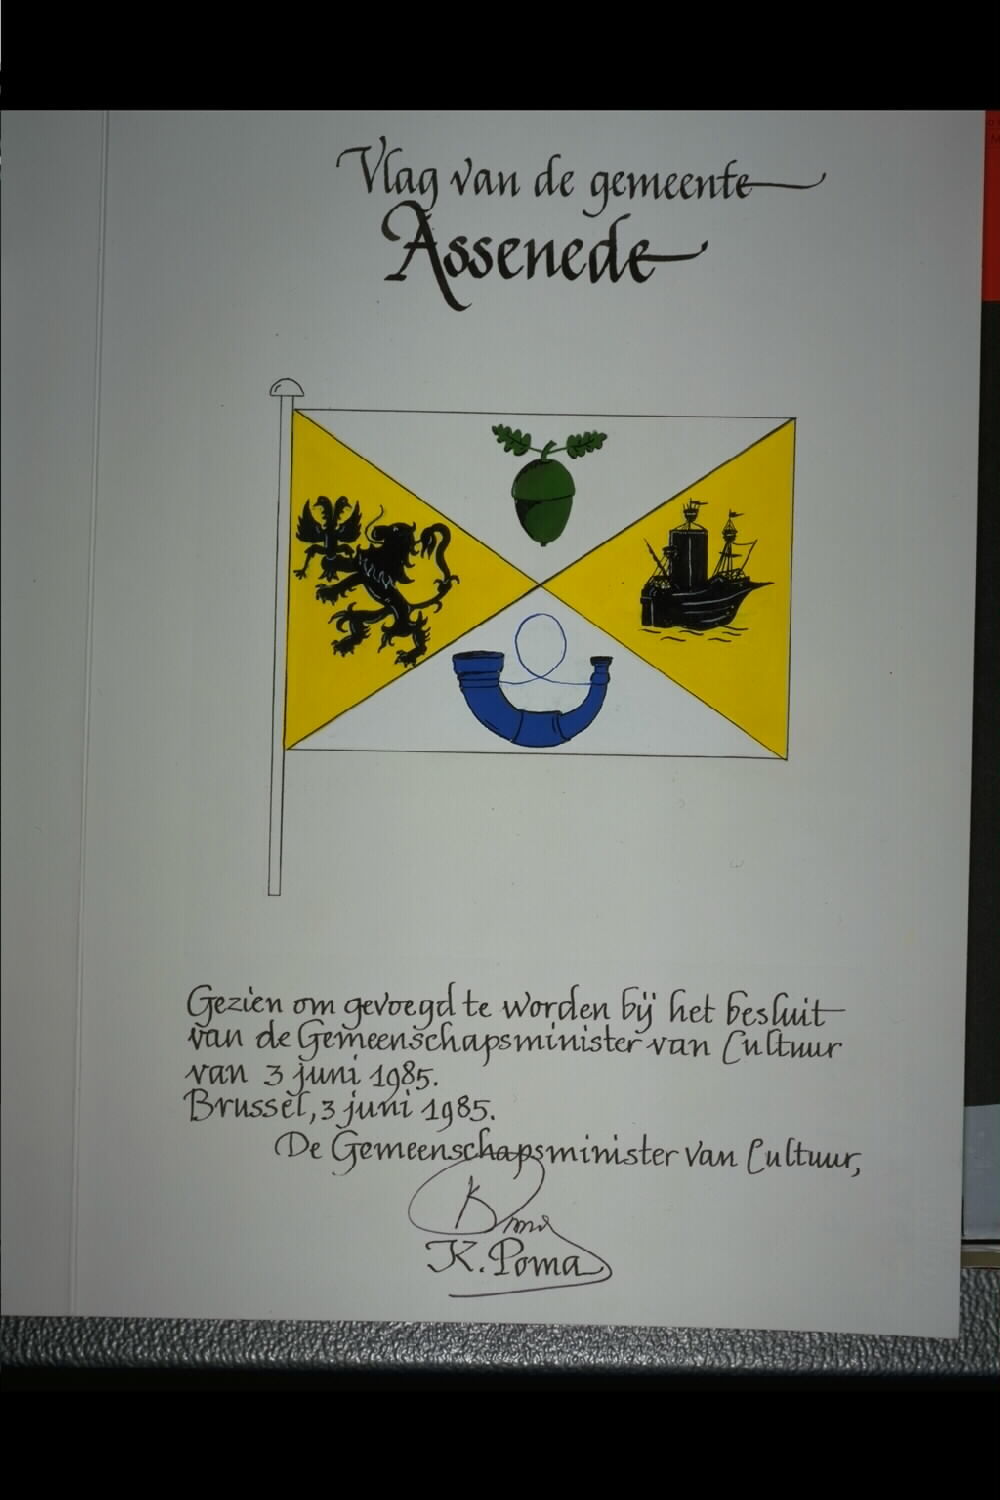 Vlag van de gemeente
Assenede
Gezien om gevoegd te worden bij het besluit
van de Gemeenschapsminister van Cultuur
van 3 juni 1985.
Brussel, 3 juni 1985.
De Gemeenschapsminister van Cultuur,
K. Poma